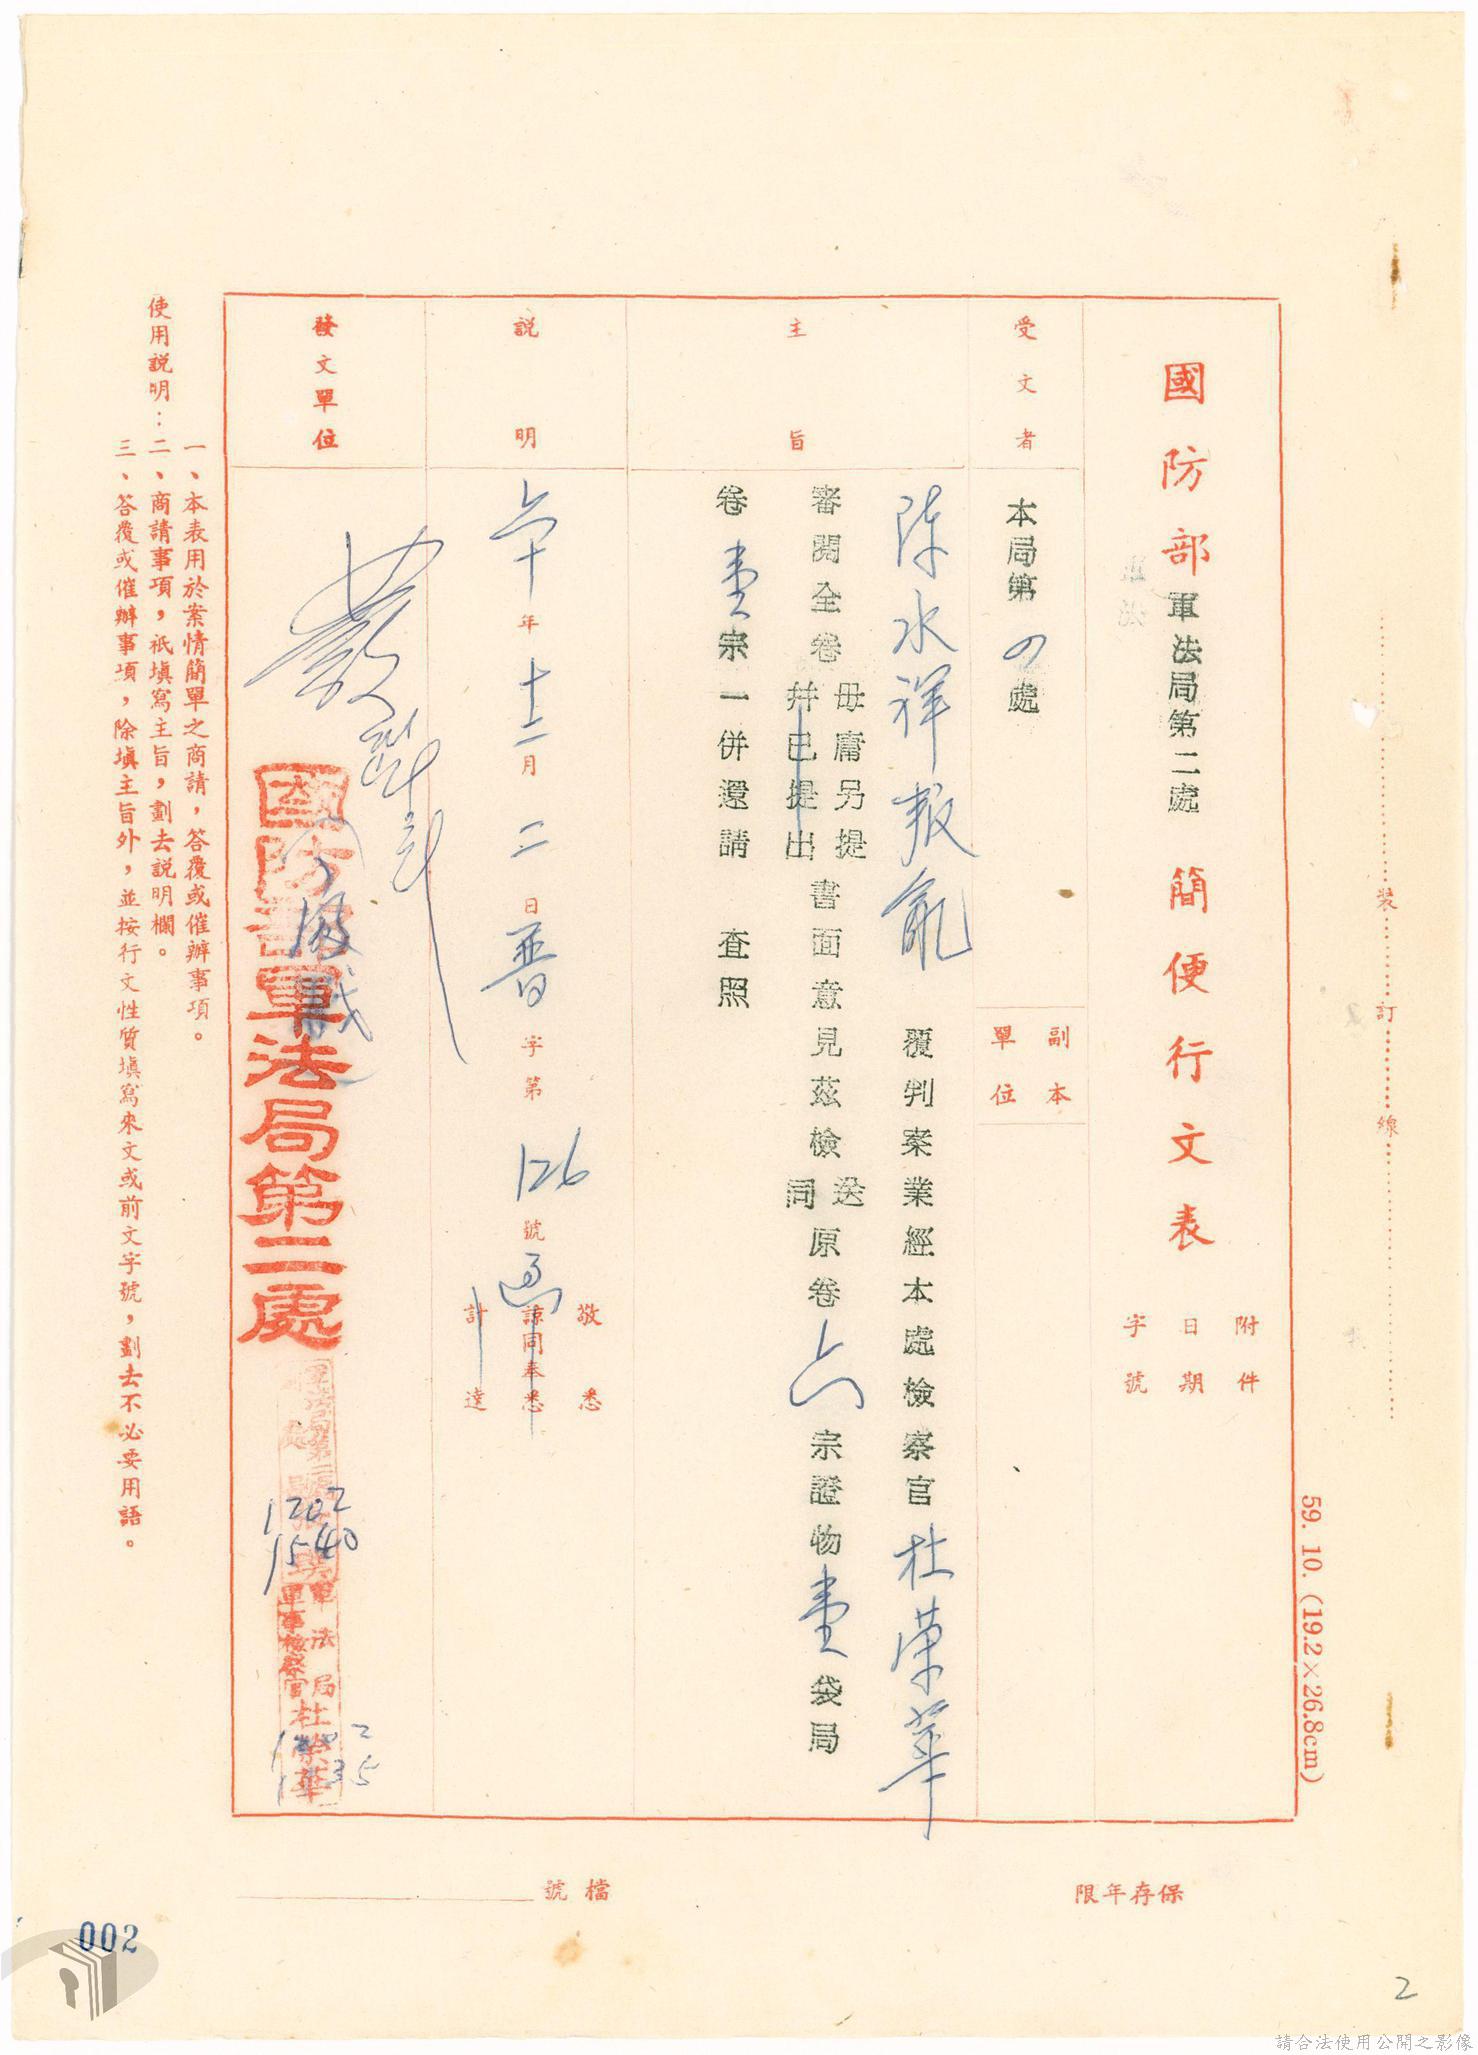 國防部軍法局第二處 簡便行文表
附件
日期
字號
受文者
本局第四處
副本
單位
主旨
陳水祥叛亂 覆判案業經本處檢察官杜榮華
審閱全卷 毋庸另提 并已提出 書面意見茲檢 送 同 原卷六宗證物壹袋局
卷壹宗一併還請 查照
說明
六十年十二月二日普字第126號函
敬悉
諒同奉悉
計達
發文單位
國防部軍法局第二處
軍法局
軍事檢察官
杜榮華
1202
1540
使用說明：
一、本表用於案情簡單之商請，答覆或催辦事項。
二、商請事項，祇填寫主旨，劃去說明欄。
三、答覆或催辦事項，除填主旨外，並按行文性質填寫來文或前文字號，劃去不必要用語。
裝 訂 線
59. 10. (19.2×26.8cm)
保存年限
檔號
002
2
請合法使用公開之影像